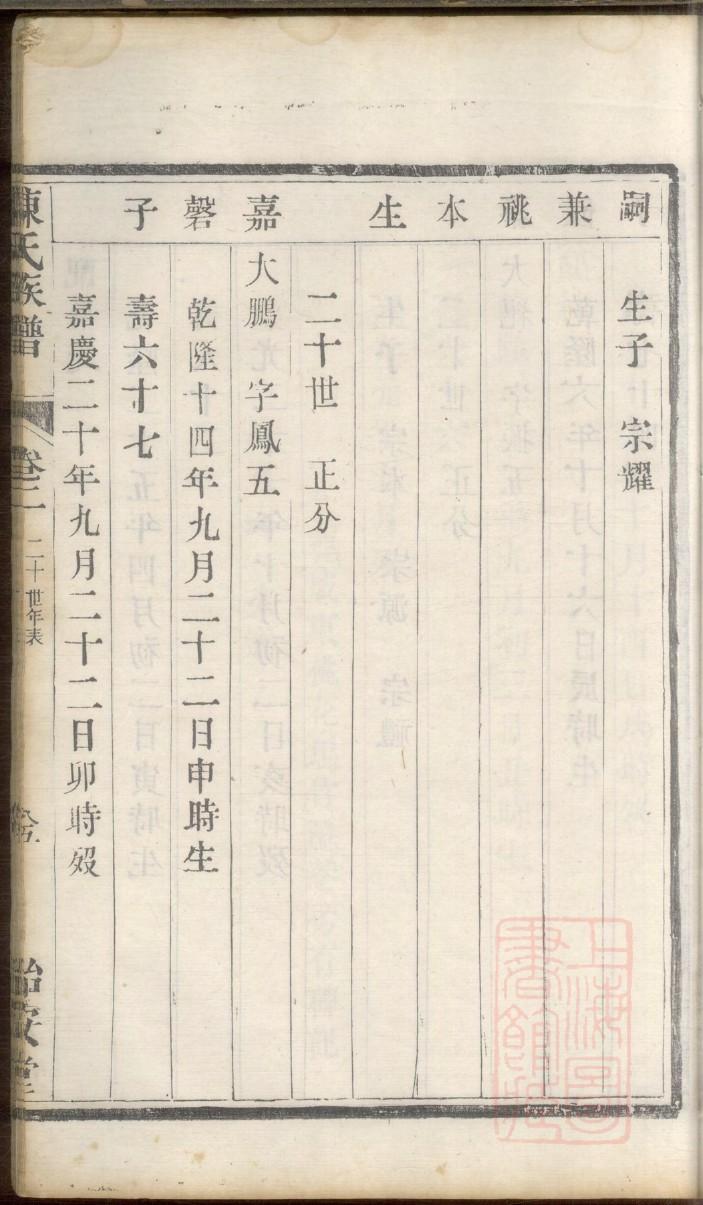 嗣 兼 祧 本 生 嘉 磬 子
生子 宗耀
二十世 正分
大鵬 字鳳五
乾隆十四年九月二十二日申時生
壽六十七
嘉慶二十年九月二十二日卯時歿
陳氏族譜 卷二 二十世年表
怡安堂
上海圖書館藏